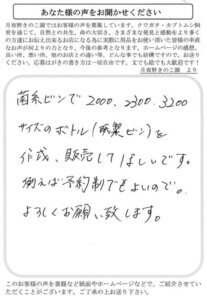 あなた様の声をお聞かせください
月夜野きのこ園ではお客様の声を募集しています。クワガタ・カブトムシ飼
育を通じて、自然との共生、命の大切さ、さまざまな発見と感動をより多く
の方達にお伝え出来るお店になる為に実際に用品をお使い頂いた皆様の率直
なお声が何よりの力となり、今後の参考となります。ホームページの感想、
良い所、悪い所、他のお店との違い等、どんな事でも結構ですので、お送り
ください。応募はがきの書き方は一切自由です。文でも絵でも大歓迎です！
月夜野きのこ園 より
菌糸ビンで2000、2300、3200
サイズのボトル(既製ビン)を
作成、販売してほしいです。
例えば予約制でもよいので。
よろしくお願い致します。
このお客様の声を書籍など紙面やホームページなどで、ご紹介させていた
だくことがございます。ご了承の上お送り下さい。